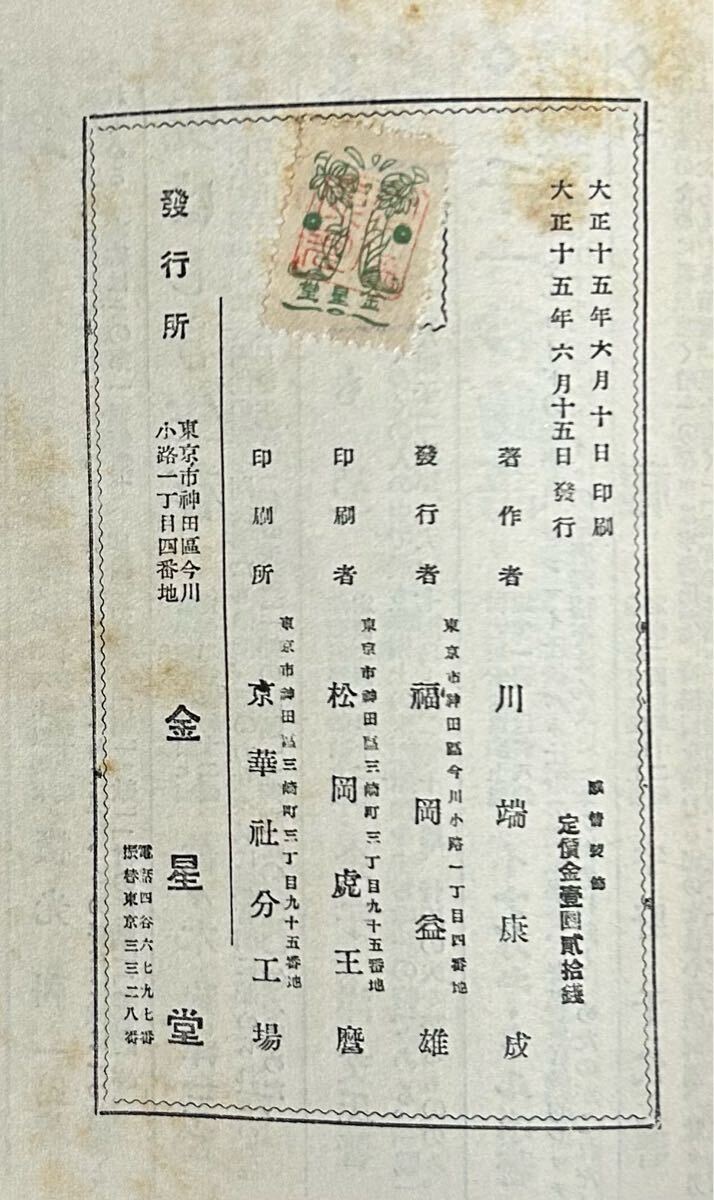 大正十五年六月十日印刷
大正十五年六月十五日發行
定價金壹圓貳拾錢
著作者 川端康成
發行者 東京市神田區今川小路一丁目四番地
福岡益雄
印刷者 東京市神田區三崎町三丁目九十五番地
松岡虎王麿
印刷所 東京市神田區三崎町三丁目九十五番地
京華社分工場
發行所 東京市神田區今川
小路一丁目四番地
金星堂
電話四谷六七九七番
振替東京三三二八番
金星堂